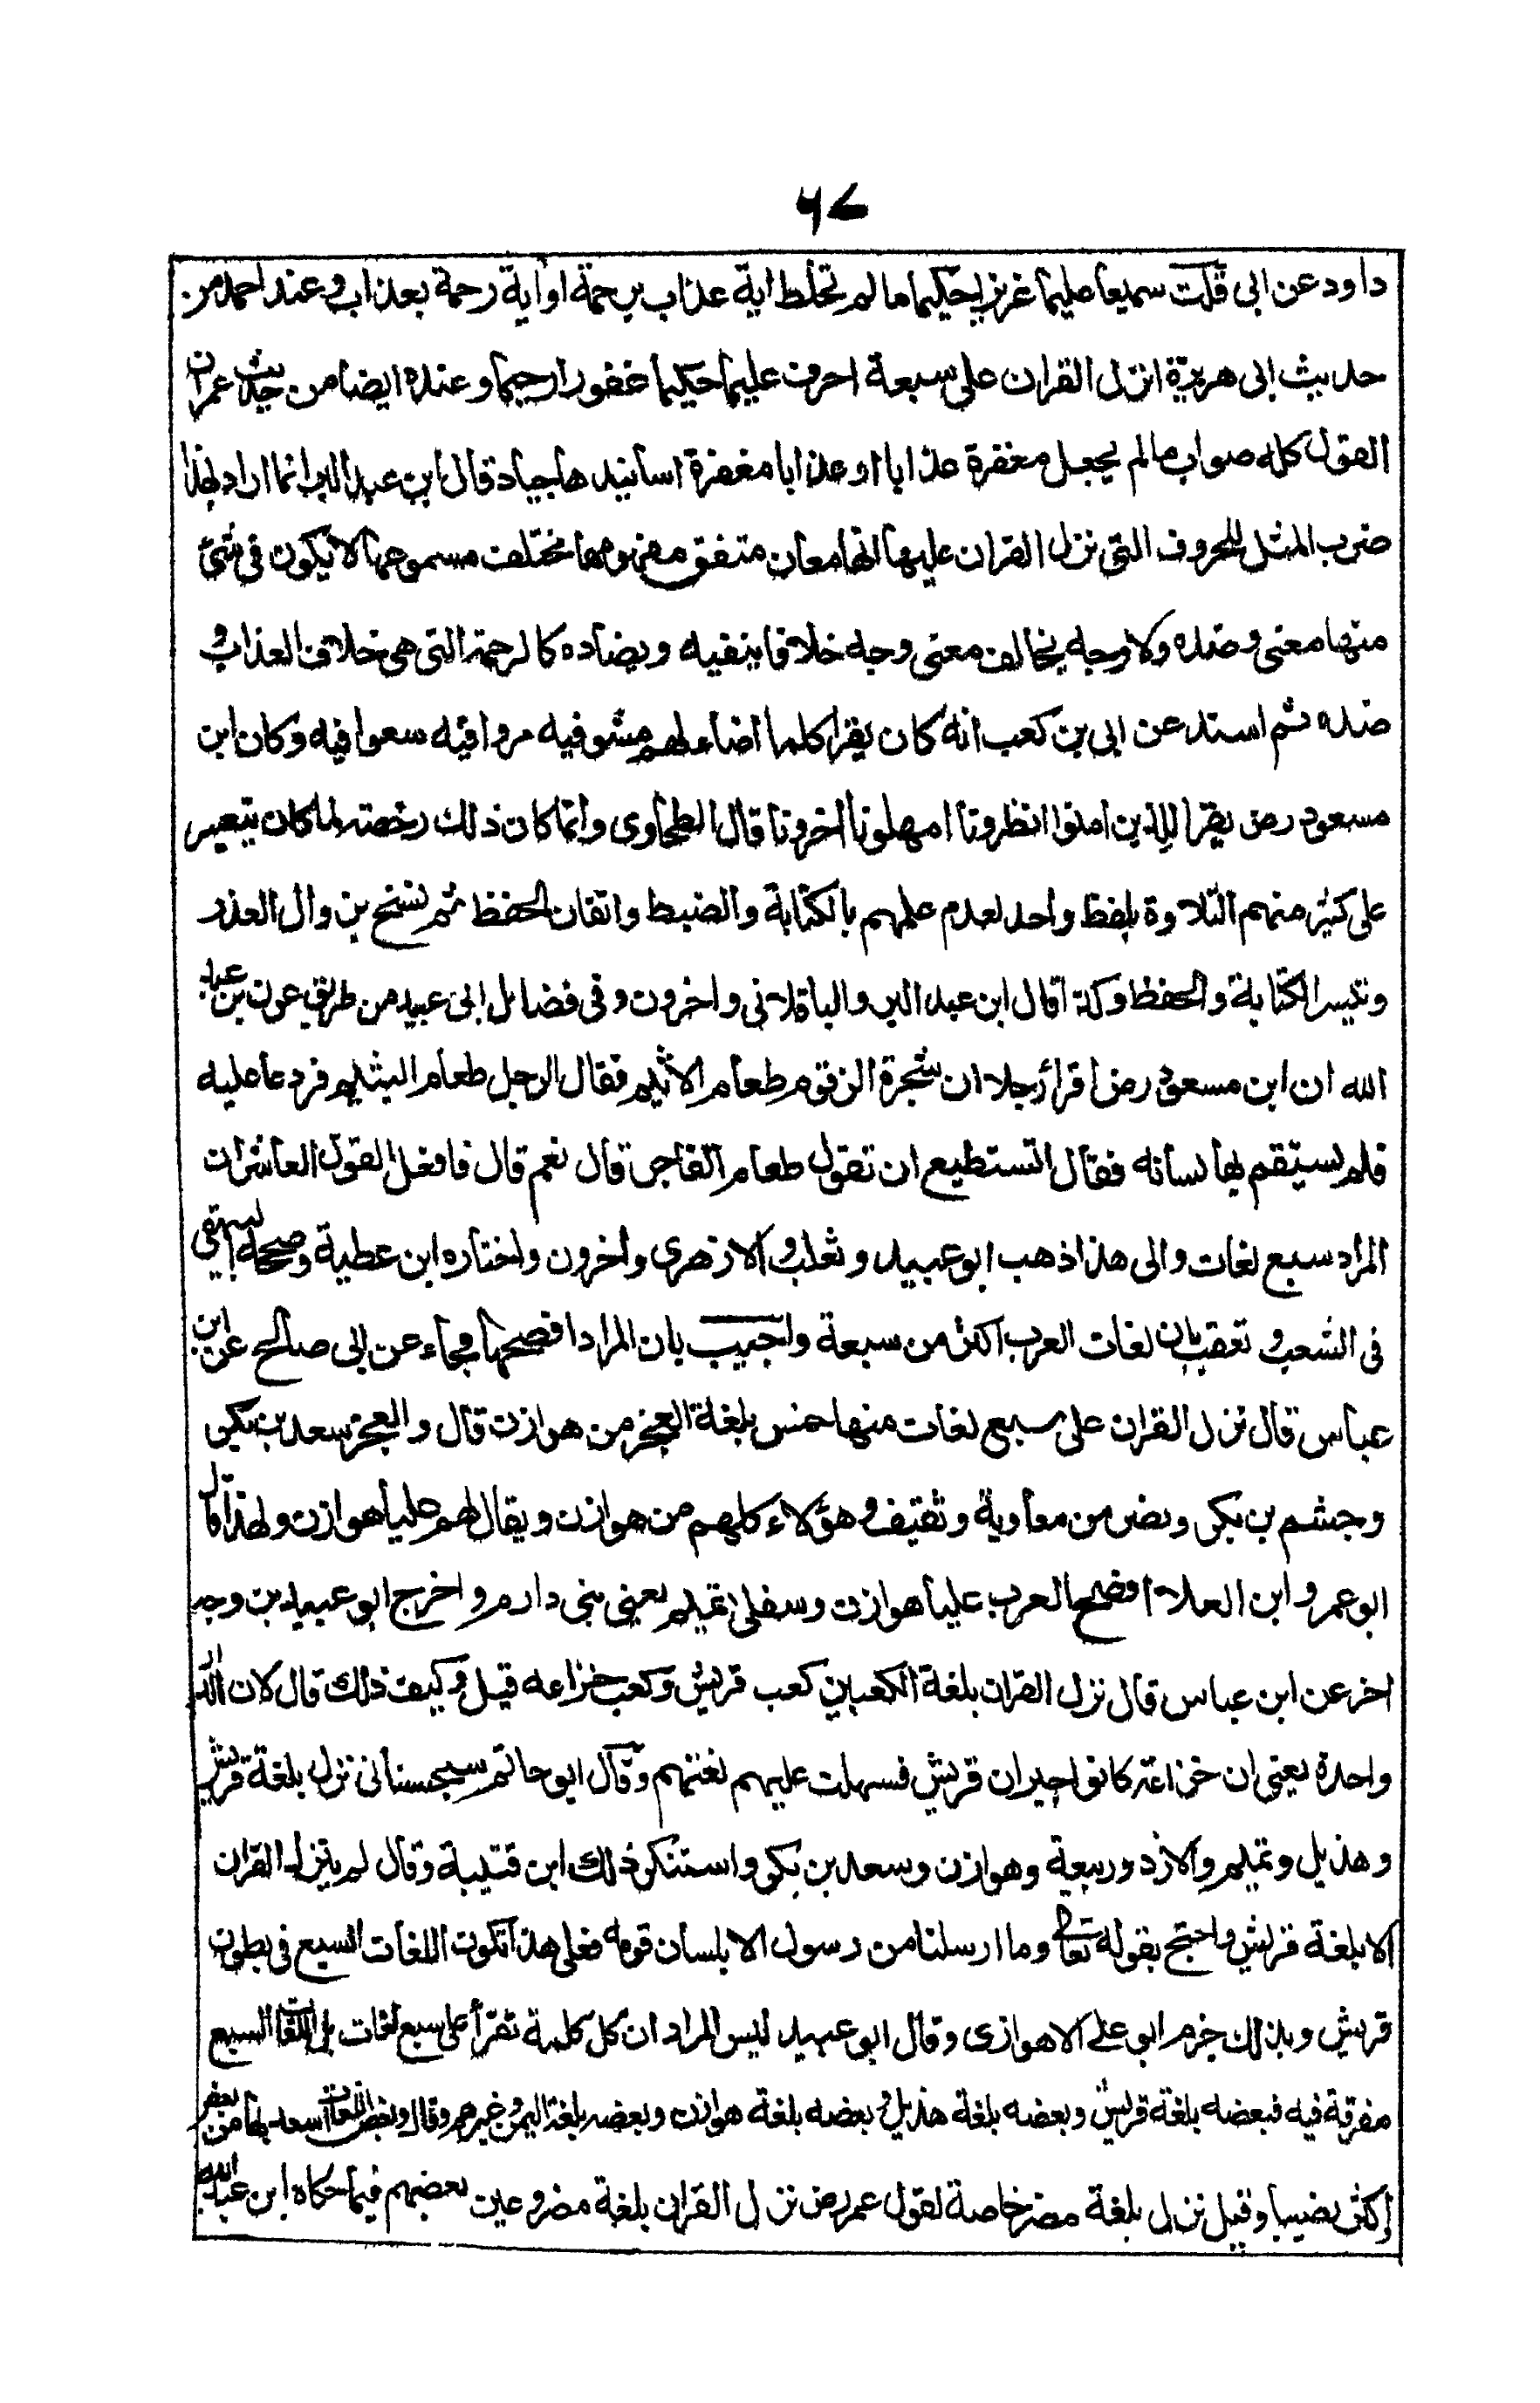 ٦٧
داود عن ابى قلت سميعا عليما عزيزا حكيما ما لم تخلط اية عذاب برحمة او اية رحمة بعذاب وعند احمد من
حديث ابى هريرة انزل القران على سبعة احرف عليما حكيما غفورا رحيما وعنده ايضا من حديث عمران
القول كله صواب ما لم يجعل مغفرة عذابا او عذابا مغفرة اسانيدها جياد قال ابن عبد البر انما اراد بهذا
ضرب المثل للحروف التى نزل القران عليها انها معان متفق مفهومها مختلف مسموعها لا يكون فى شئ
منها معنى وضده ولا وجه يخالف معنى وجه خلافا ينفيه ويضاده كالرحمة التى هى خلاف العذاب و
ضده ثم اسند عن ابى بن كعب انه كان يقرا كلما اضاء لهم مشو فيه مروا فيه سعوا فيه وكان ابن
مسعود رض يقرا للذين امنوا انظرونا امهلونا اخرونا قال الطحاوى وانما كان ذلك رخصة لما كان يتعسر
على كثير منهم التلاوة بلفظ واحد لعدم علمهم بالكتابة والضبط واتقان الحفظ ثم نسخ بزوال العذر
وتيسر الكتابة والحفظ وكذا قال ابن عبد البر والباقلانى واخرون وفى فضائل ابى عبيد من طريق عون بن عبد
الله ان ابن مسعود رض اقرأ رجلا ان شجرة الزقوم طعام الاثيم فقال الرجل طعام اليثيم فردها عليه
فلم يستقم بها لسانه فقال اتستطيع ان تقول طعام الفاجر قال نعم قال فافعل القول العاشر ان
المراد سبع لغات والى هذا ذهب ابو عبيد وثعلب والازهرى واخرون واختاره ابن عطية وصححه البيهقى
فى الشعب وتعقب بان لغات العرب اكثر من سبعة واجيب بان المراد افصحها فجاء عن ابى صالح عن ابن
عباس قال نزل القران على سبع لغات منها خمس بلغة العجز من هوازن قال والعجز سعد بن بكر
وجشم بن بكر ونصر من معاوية وثقيف وهؤلاء كلهم من هوازن ويقال لهم عليا هوازن ولهذا قال
ابو عمرو ابن العلاء افصح العرب عليا هوازن وسفلى تميم يعنى بنى دارم واخرج ابو عبيد بن وجه
اخر عن ابن عباس قال نزل القران بلغة الكعبين كعب قريش وكعب خزاعه قيل وكيف ذلك قال لان الدار
واحدة يعنى ان خزاعة كانوا جيران قريش فسهلت عليهم لغتهم وقال ابو حاتم سجستانى نزل بلغة قريش
وهذيل وتميم والازد وربيعة وهوازن وسعد بن بكر واستنكر ذلك ابن قتيبة وقال لم ينزل القران
الا بلغة قريش واحتج بقوله تعالى وما ارسلنا من رسول الا بلسان قومه فعلى هذا تكون اللغات السبع فى بطون
قريش وبذلك جزم ابو على الاهوازى وقال ابو عبيد ليس المراد ان كل كلمة تقرأ على سبع لغات بل اللغات السبع
مفرقة فيه فبعضه بلغة قريش وبعضه بلغة هذيل وبعضه بلغة هوازن وبعضه بلغة اليمن وغيرهم وقال وبعض اللغات اسعد بها من بعض
اكثر نصيبا وقيل نزل بلغة مضر خاصة لقول عمر رض نزل القران بلغة مضر وعين بعضهم فيما حكاه ابن عبد البر